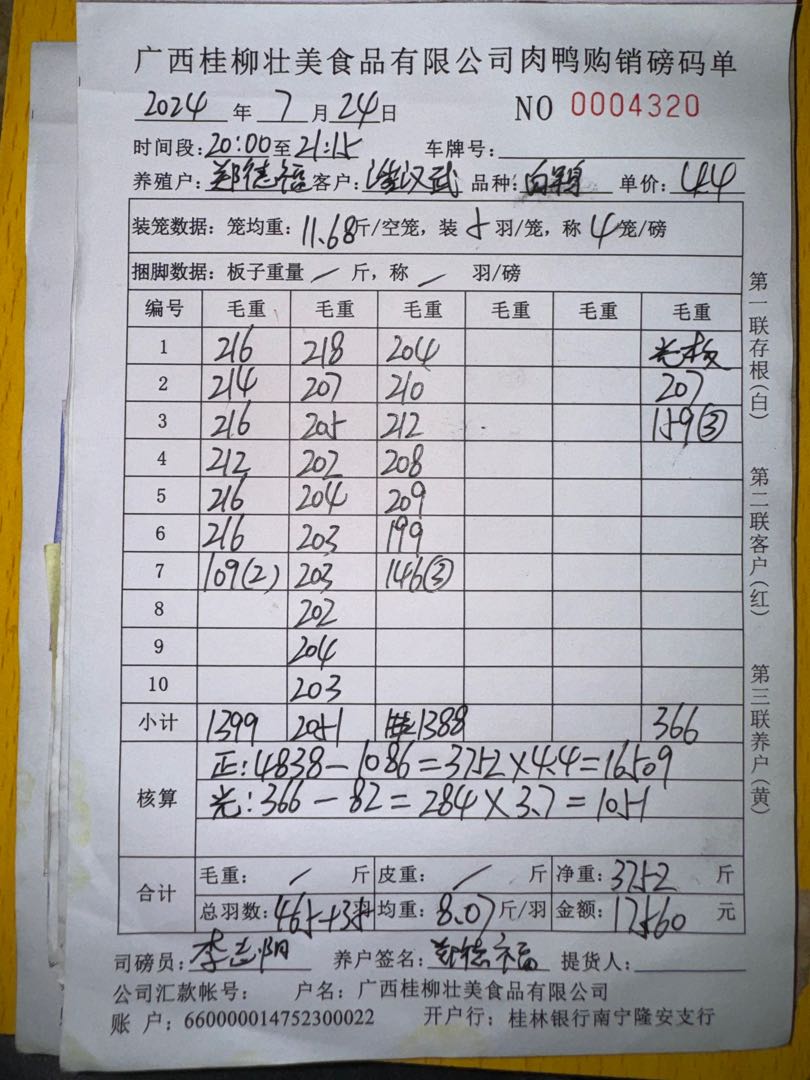 广西桂柳壮美食品有限公司肉鸭购销磅码单
2024 年 7 月 24 日 NO 0004320
时间段: 20:00 至 21:15 车牌号:
养殖户: 郑德福 客户: 汉武 品种: 白鸭 单价: 4.4
装笼数据: 笼均重: 11.68 斤/空笼, 装 5 羽/笼, 称 4 笼/磅
捆脚数据: 板子重量 / 斤, 称 / 羽/磅
编号 毛重 毛重 毛重 毛重 毛重 毛重
1 216 218 204 光板
2 214 207 210 207
3 216 205 212 159③
4 212 202 208
5 216 204 209
6 216 203 199
7 109(2) 203 146③
8 202
9 204
10 203
小计 1399 2051 1388 366
核算
正: 4838-1086=3752×4.4=16509
光: 366-82=284×3.7=1051
合计
毛重: / 斤 皮重: / 斤 净重: 3752 斤
总羽数: 465+35 羽 均重: 8.07 斤/羽 金额: 17560 元
司磅员: 李志阳 养户签名: 郑德福 提货人:
公司汇款帐号: 户名: 广西桂柳壮美食品有限公司
账 户: 660000014752300022 开户行: 桂林银行南宁隆安支行
第一联存根(白) 第二联客户(红) 第三联养户(黄)